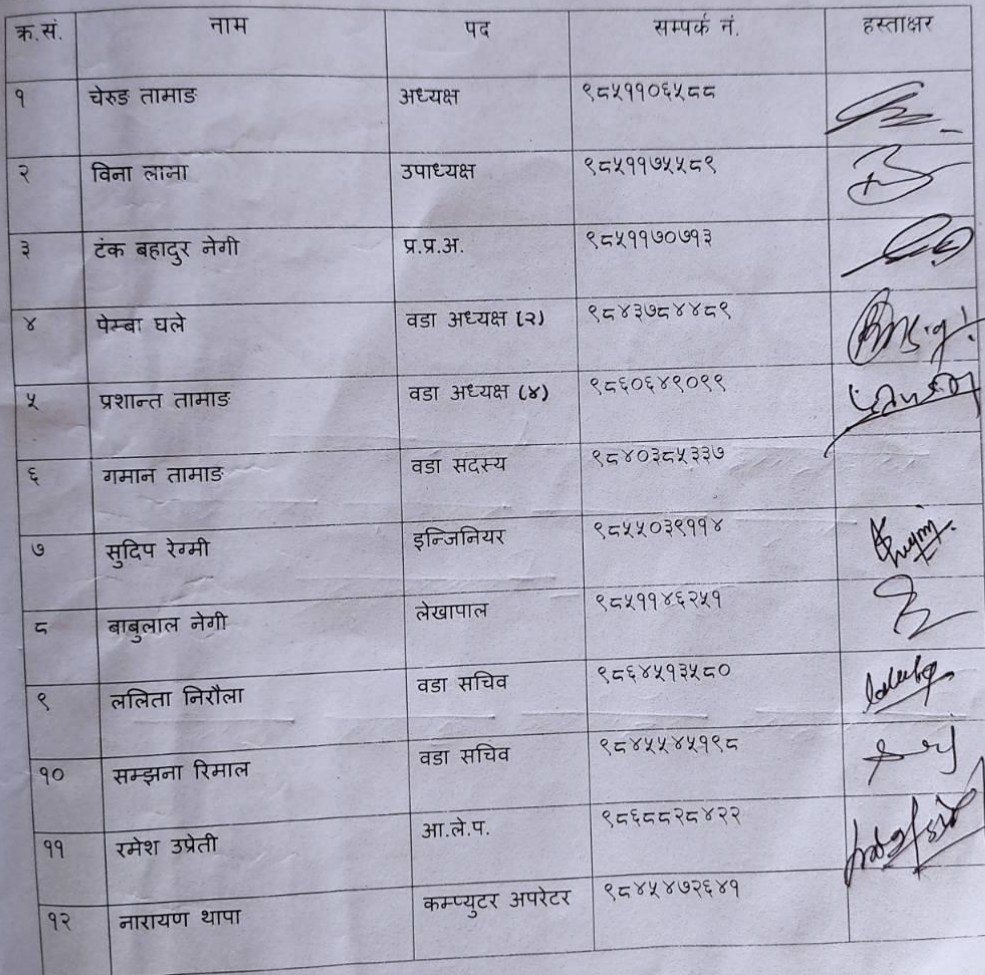 क्र.सं. नाम पद सम्पर्क नं. हस्ताक्षर
१ चेरुङ तामाङ अध्यक्ष ९८५११०६५८८
२ विना लामा उपाध्यक्ष ९८५११७५५८९
३ टंक बहादुर नेगी प्र.प्र.अ. ९८५११७०७१३
४ पेम्बा घले वडा अध्यक्ष (२) ९८४३७८४४८९
५ प्रशान्त तामाङ वडा अध्यक्ष (४) ९८६०६४९०९९
६ गमान तामाङ वडा सदस्य ९८४०३८५३३७
७ सुदिप रेग्मी इन्जिनियर ९८५५०३९११४
८ बाबुलाल नेगी लेखापाल ९८५११४६२५१
९ ललिता निरौला वडा सचिव ९८६४५१३५८०
१० सम्झना रिमाल वडा सचिव ९८४५५४५१९८
११ रमेश उप्रेती आ.ले.प. ९८६८८२८४२२
१२ नारायण थापा कम्प्युटर अपरेटर ९८४५४७२६४१